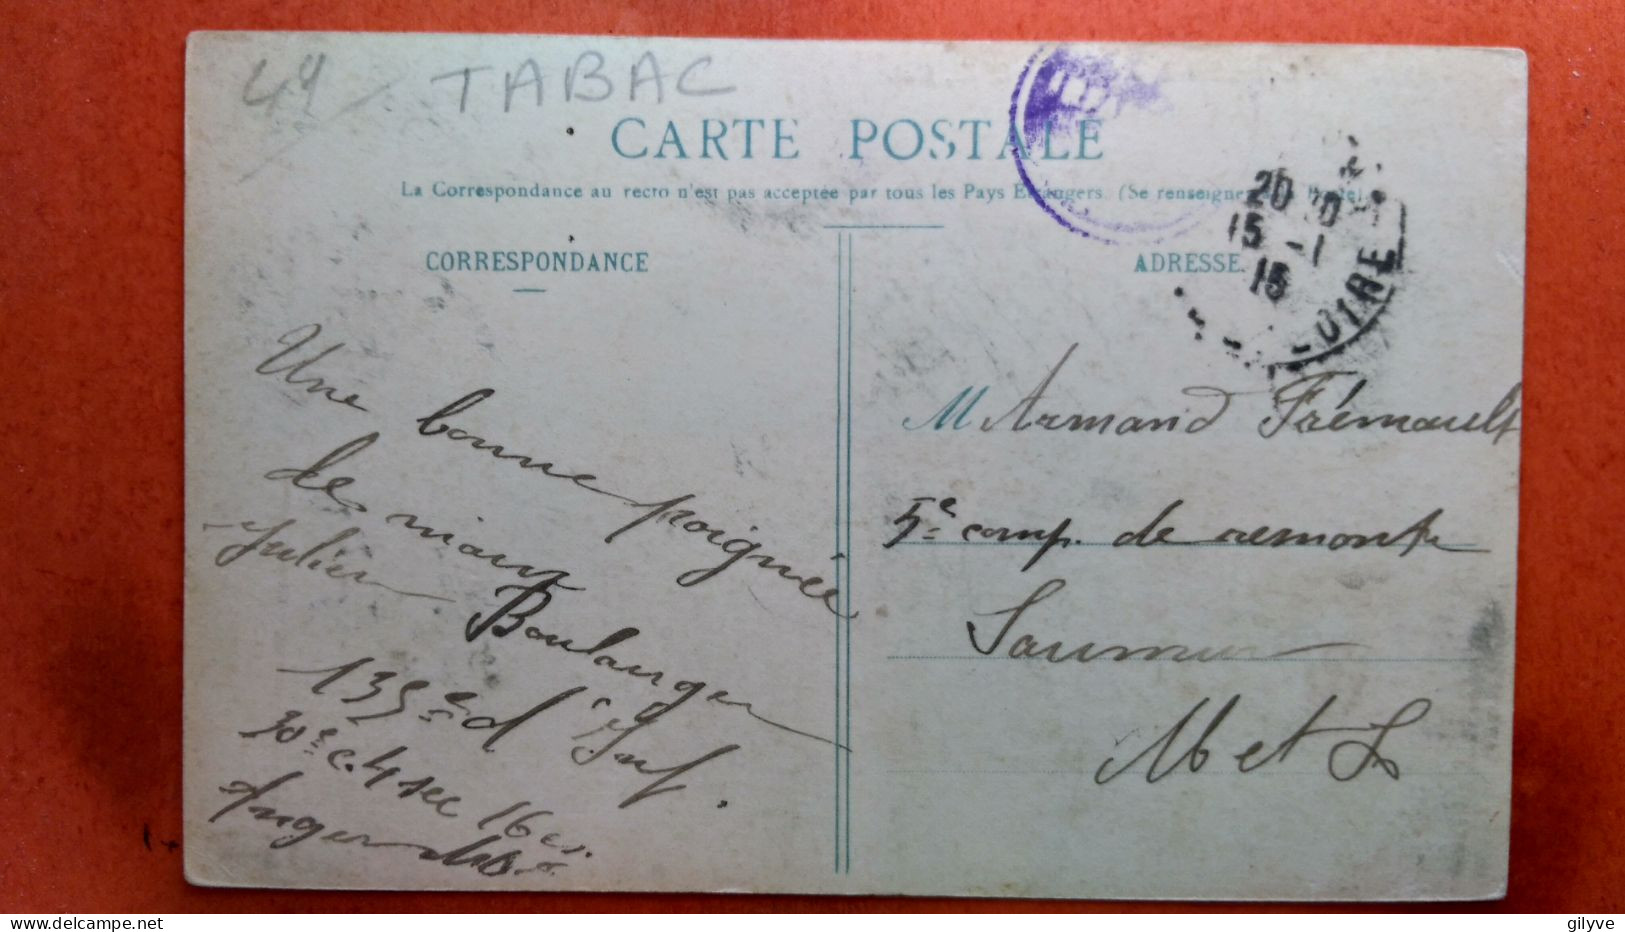 49 TABAC
CARTE POSTALE
La Correspondance au recto n'est pas acceptée par tous les Pays Etrangers. (Se renseigner
CORRESPONDANCE
ADRESSE
20 30
15 - 1
15
LOIRE
Une bonne poignée
de main
Julien Boulanger
135e d'Inf.
30e C. 4 sec 16 es.
Angers
M Armand Frémault
5e comp. de remonte
Saumur
M et L
gilyve